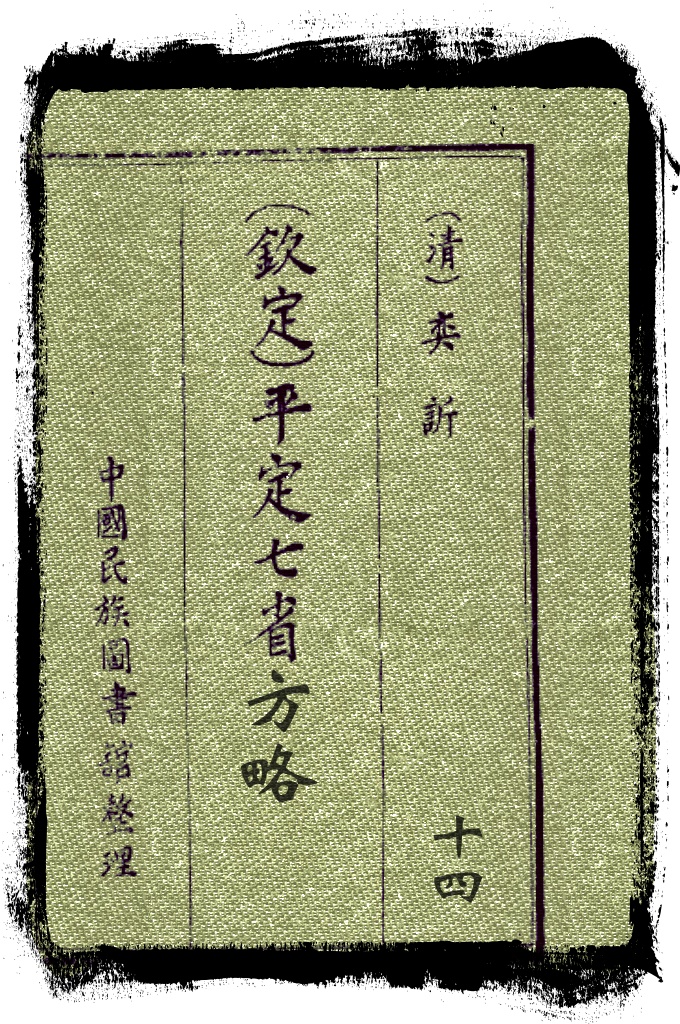 （清）奕訢
十四
（欽定）平定七省方略
中國民族圖書舘整理